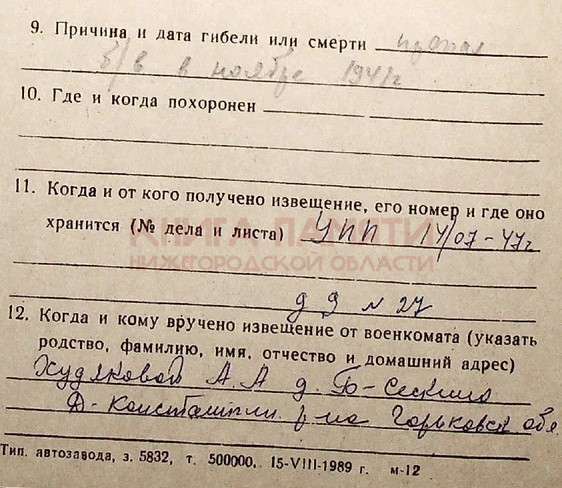 9. Причина и дата гибели или смерти пропал
б/в в ноябре 1941г
10. Где и когда похоронен
11. Когда и от кого получено извещение, его номер и где оно
хранится (№ дела и листа) УПП 4/07-47г
КНИГА ПАМЯТИ
НИЖЕГОРОДСКОЙ ОБЛАСТИ
д 9 № 27
12. Когда и кому вручено извещение от военкомата (указать
родство, фамилию, имя, отчество и домашний адрес)
Худяковой А. А д. Б-Сескино
Д-Константин. р-на Горьковск обл.
Тип. автозавода, з. 5832, т. 500000, 15-VIII-1989 г. м-12